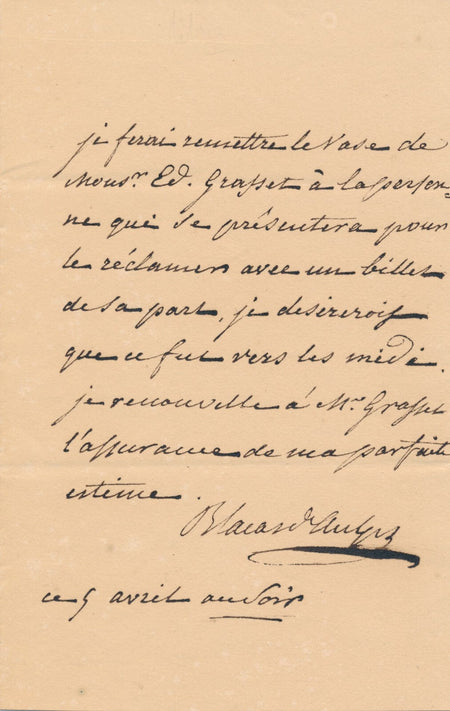 je ferai remettre le Vase de
Monsr. Ed. Grasset à la person-
ne qui se présentera pour
le réclamer avec un billet
de sa part, je désirerois
que ce fut vers les midi.
je renouvelle à Mr. Grasset
l'assurance de ma parfaite
estime.
Blacas d'Aulps
ce 5 avril au Soir